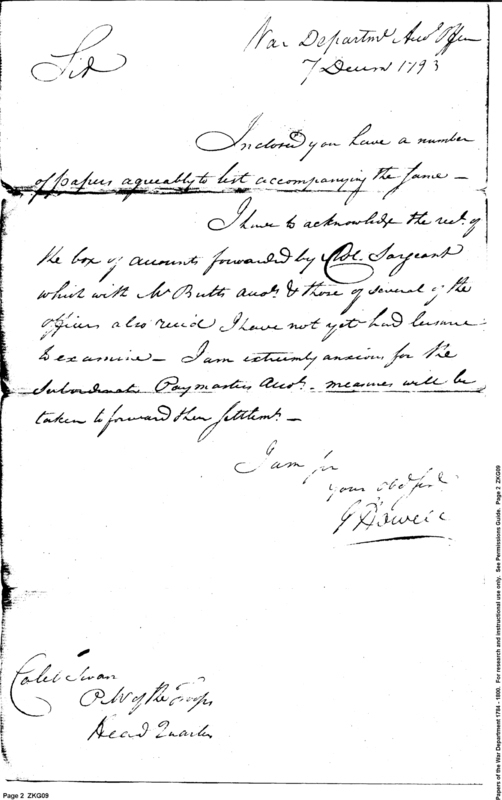 War Departmt Acct Office
7 Decem 1793
Sir
Inclosed you have a number
of papers agreeably to list accompanying the same –
I have to acknowledge the rect. of
the box of accounts forwarded by Col. Sargeant
which with Mr Butts Accts. & those of several of the
officers also recied I have not yet had leisure
to examine – I am extremly anxious for the
Subordinate Paymasters Accts. measures will be
taken to forward their settlemt. –
I am Sir
your Obd Servt
J Howell
Caleb Swan
P. M of the Troops
Head Quarters
Page 2 ZKG09
Papers of the War Department 1784 - 1800. For research and instructional use only. See Permissions Guide. Page 2 ZKG09